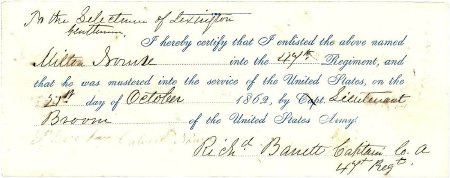 To the Selectmen of Lexington
Gentlemen
I hereby certify that I enlisted the above named
Milton into the 47th Regiment, and
that he was mustered into the service of the United States, on the
day of October 1862, by Capt Lieutenant
Broom of the United States Army.
Richd Barrett Captain Co. A
47th Regt.